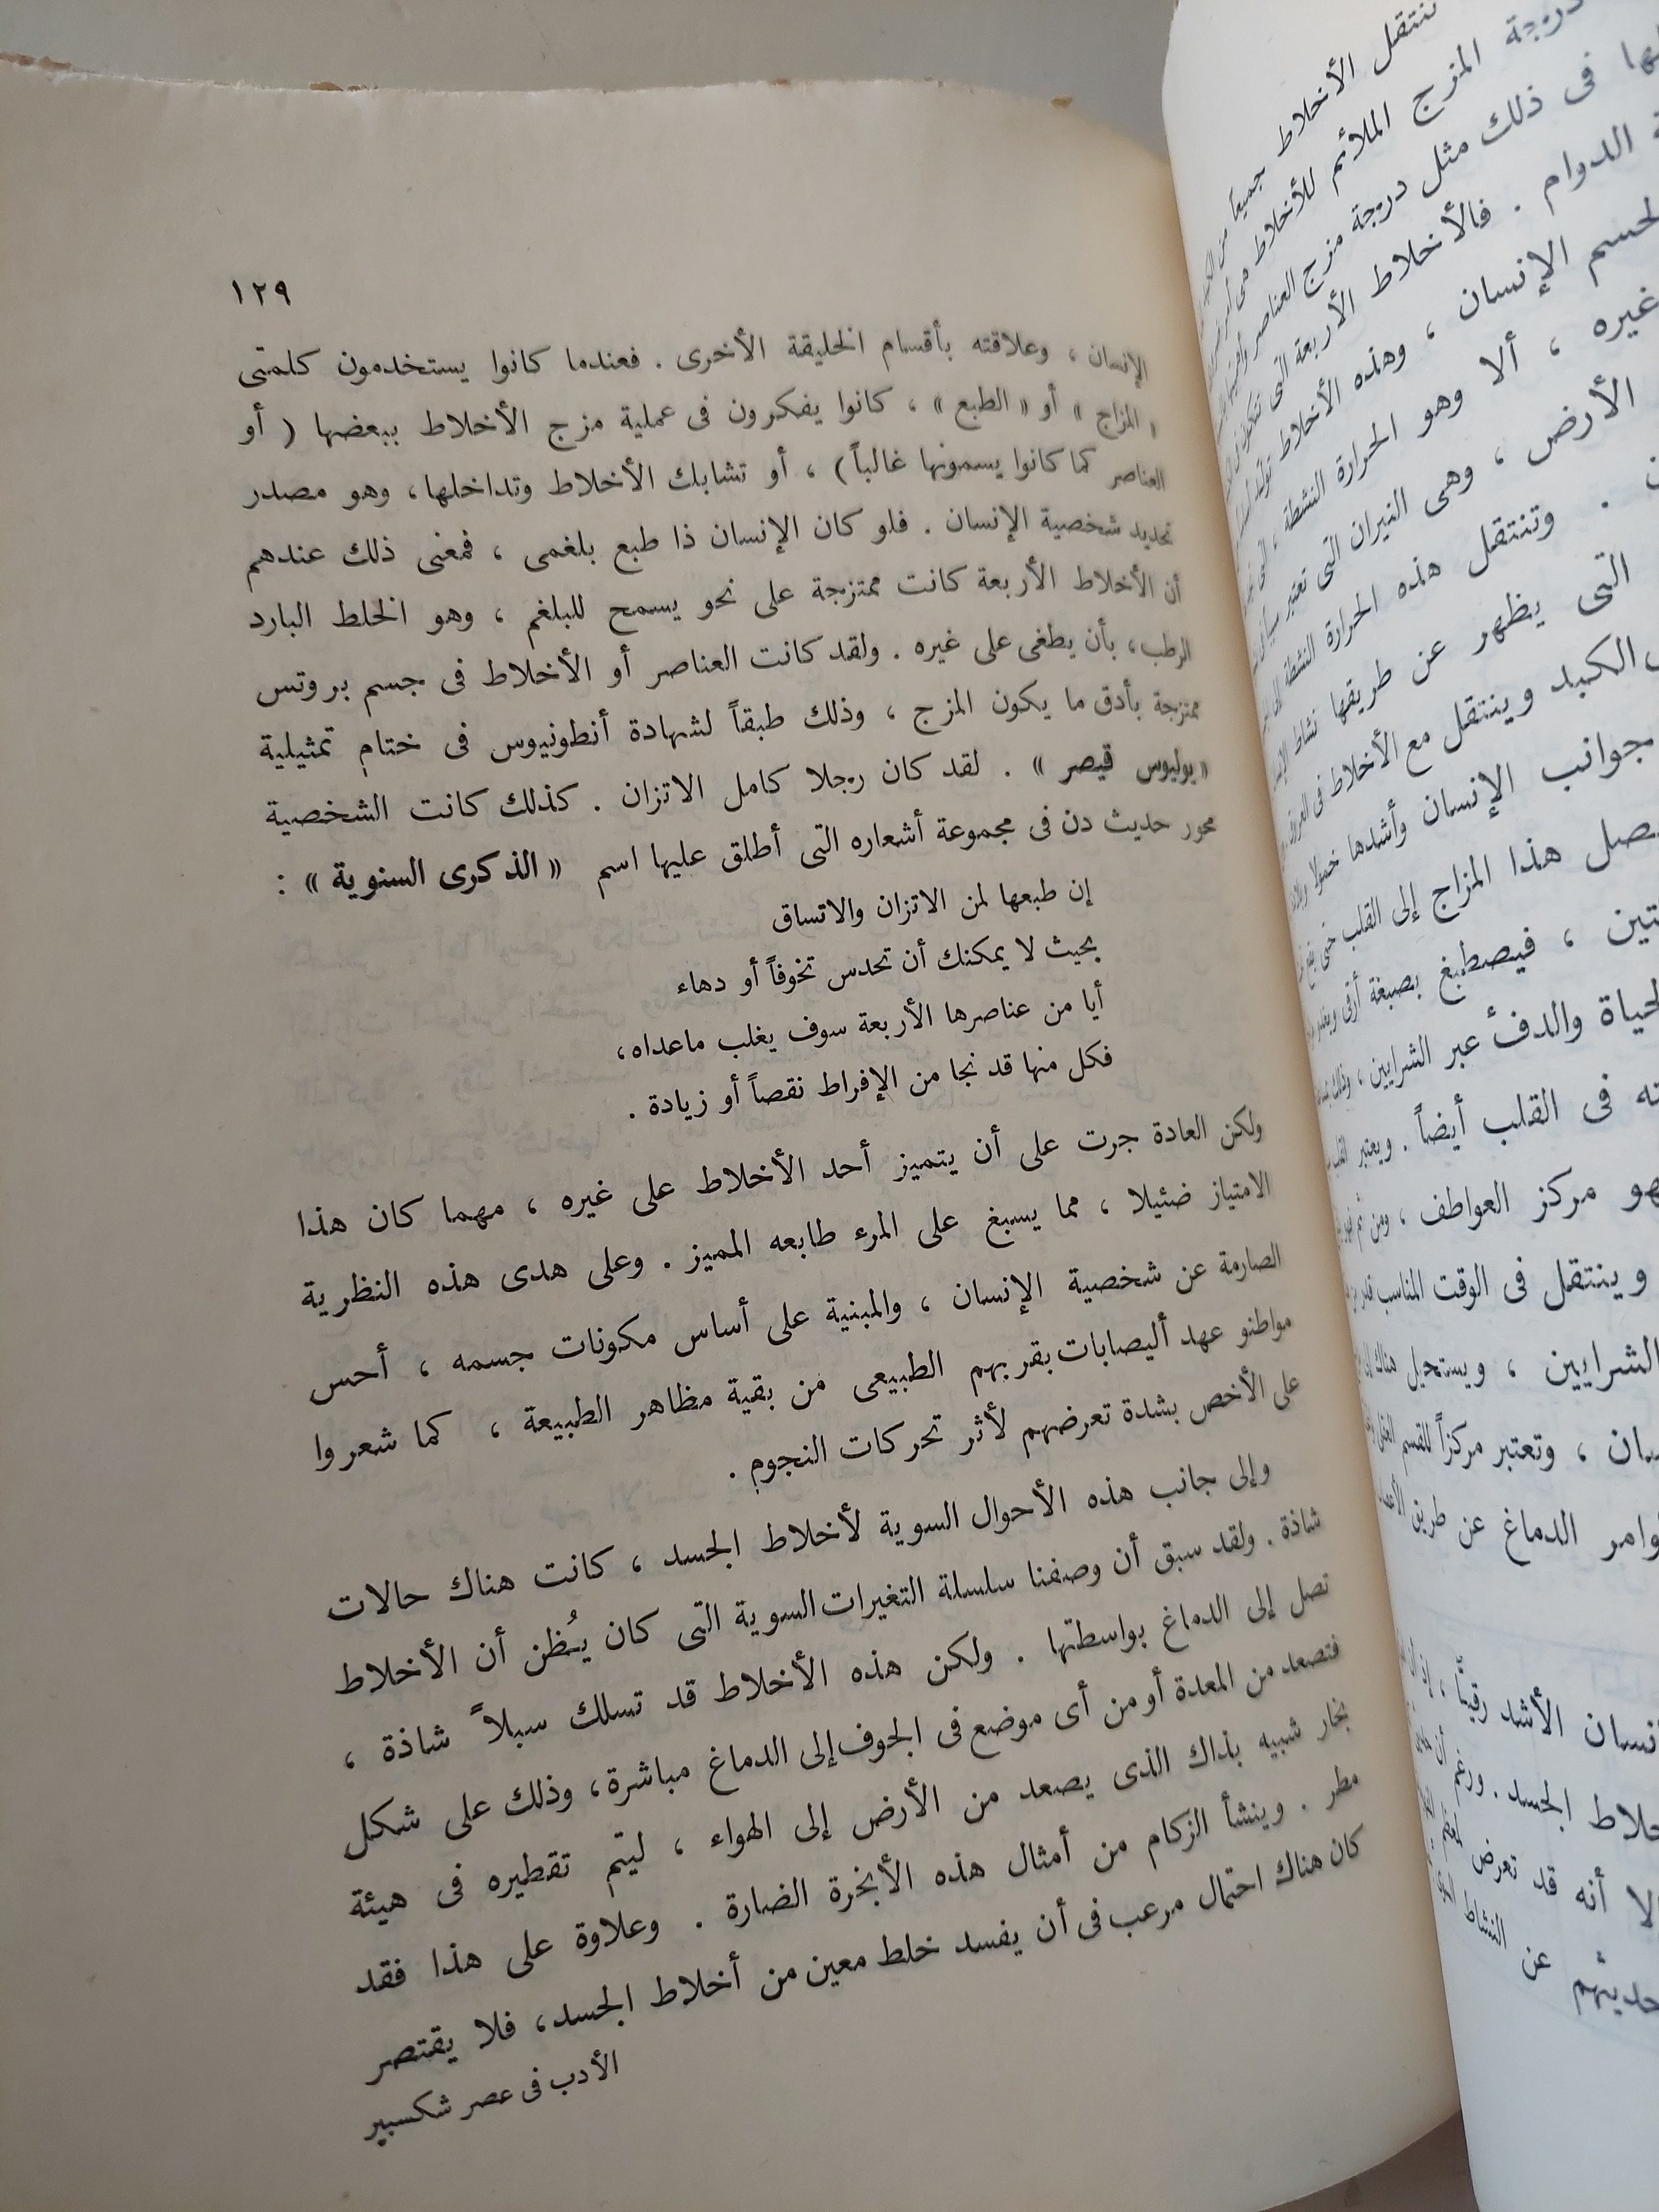 ١٢٩
الإنسان ، وعلاقته بأقسام الخليقة الأخرى . فعندما كانوا يستخدمون كلمتى
« المزاج » أو « الطبع » ، كانوا يفكرون فى عملية مزج الأخلاط ببعضها ( أو
العناصر كما كانوا يسمونها غالباً ) ، أو تشابك الأخلاط وتداخلها ، وهو مصدر
تحديد شخصية الإنسان . فلو كان الإنسان ذا طبع بلغمى ، فمعنى ذلك عندهم
أن الأخلاط الأربعة كانت ممتزجة على نحو يسمح للبلغم ، وهو الخلط البارد
الرطب ، بأن يطغى على غيره . ولقد كانت العناصر أو الأخلاط فى جسم بروتس
ممتزجة بأدق ما يكون المزج ، وذلك طبقاً لشهادة أنطونيوس فى ختام تمثيلية
« يوليوس قيصر » . لقد كان رجلا كامل الاتزان . كذلك كانت الشخصية
محور حديث دن فى مجموعة أشعاره التى أطلق عليها اسم « الذكرى السنوية » :
إن طبعها لمن الاتزان والاتساق
بحيث لا يمكنك أن تحدس تخوفاً أو دهاء
أيا من عناصرها الأربعة سوف يغلب ماعداه ،
فكل منها قد نجا من الإفراط نقصاً أو زيادة .
ولكن العادة جرت على أن يتميز أحد الأخلاط على غيره ، مهما كان هذا
الامتياز ضئيلا ، مما يسبغ على المرء طابعه المميز . وعلى هدى هذه النظرية
الصارمة عن شخصية الإنسان ، والمبنية على أساس مكونات جسمه ، أحس
مواطنو عهد أليصابات بقربهم الطبيعى من بقية مظاهر الطبيعة ، كما شعروا
على الأخص بشدة تعرضهم لأثر تحركات النجوم .
وإلى جانب هذه الأحوال السوية لأخلاط الجسد ، كانت هناك حالات
شاذة . ولقد سبق أن وصفنا سلسلة التغيرات السوية التى كان يُظن أن الأخلاط
تصل إلى الدماغ بواسطتها . ولكن هذه الأخلاط قد تسلك سبلاً شاذة ،
فتصعد من المعدة أو من أى موضع فى الجوف إلى الدماغ مباشرة ، وذلك على شكل
بخار شبيه بذاك الذى يصعد من الأرض إلى الهواء ، ليتم تقطيره فى هيئة
مطر . وينشأ الزكام من أمثال هذه الأبخرة الضارة . وعلاوة على هذا فقد
كان هناك احتمال مرعب فى أن يفسد خلط معين من أخلاط الجسد ، فلا يقتصر
الأدب فى عصر شكسبير
تنتقل الأخلاط جميعا
درجة المزج الملائم للأخلاط
فى ذلك مثل درجة مزج العناصر
الدوام . فالأخلاط الأربعة التى
الإنسان ، وهذه الأخلاط
غيره ، ألا وهو الحرارة النشطة
الأرض ، وهى النيران التى تعتبر
. وتنتقل هذه الحرارة النشطة
التى يظهر عن طريقها نشاط
الكبد وينتقل مع الأخلاط فى
جوانب الإنسان وأشدها خمولا
هذا المزاج إلى القلب حتى
، فيصطبغ بصبغة أرقى
والدفء عبر الشرايين ، وذلك
فى القلب أيضاً . ويعتبر
مركز العواطف ، ومن ثم
وينتقل فى الوقت المناسب
الشرايين ، ويستحيل هناك
، وتعتبر مركزاً للقسم
الدماغ عن طريق
الأشد رقيًّا
الجسد . ورغم أن
أنه قد تعرض
عن النشاط